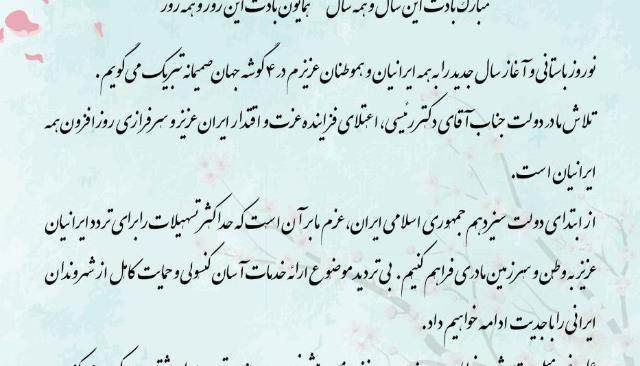 مبارک بادت این سال و همه سال همایون بادت این روز و همه روز
نوروز باستانی و آغاز سال جدید را به همه ایرانیان و هموطنان عزیزم در ۴ گوشه جهان صمیمانه تبریک می گویم.
تلاش ما در دولت جناب آقای دکتر رئیسی، اعتلای فزاینده عزت و اقتدار ایران عزیز و سرفرازی روز افزون همه
ایرانیان است.
از ابتدای دولت سیزدهم جمهوری اسلامی ایران، عزم ما بر آن است که حداکثر تسهیلات را برای تردد ایرانیان
عزیز به وطن و سرزمین مادری فراهم کنیم. بی تردید موضوع ارائه خدمات آسان کنسولی و حمایت کامل از شهروندان
ایرانی را با جدیت ادامه خواهیم داد.